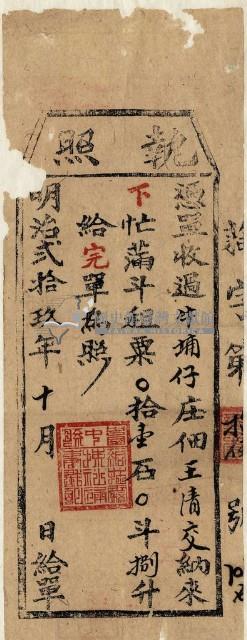 執照
憑單收過埔仔庄佃王清交納來
下忙滿斗租粟〇拾壹石〇斗捌升
給完單為照
明治貳拾玖年十月 日給單
字第 號